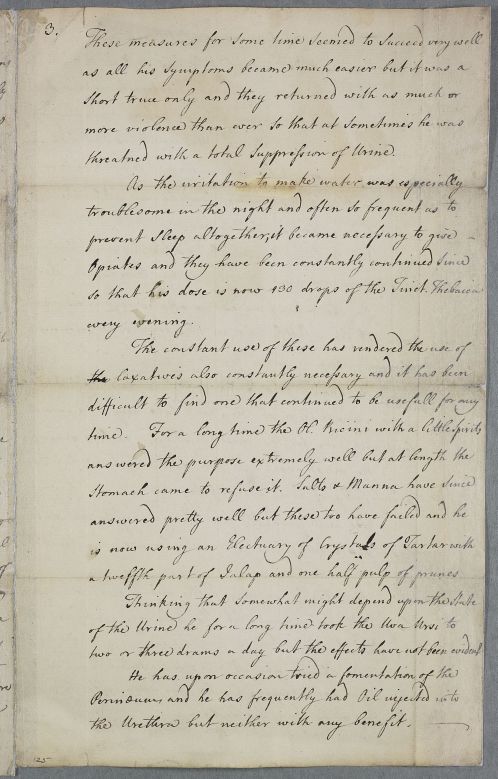 3.
These measures for some time seemed to succeed very well
as all his symptoms became much easier but it was a
short truce only and they returned with as much or
more violence than ever so that at sometimes he was
threatned with a total suppression of Urine.
As the irritation to make water was especially
troublesome in the night and often so frequent as to
prevent sleep altogether, it became necessary to give
Opiates and they have been constantly continued since
so that his dose is now 130 drops of the Tinct. Thebaica
every evening.
The constant use of these has rendered the use of
the laxatives also constantly necessary and it has been
difficult to find one that continued to be usefull for any
time. For a long time the Ol. Ricini with a little spirits
answered the purpose extremely well but at length the
Stomach came to refuse it. Salts & Manna have since
answered pretty well but these too have failed and he
is now using an Electuary of Crystals of Tartar with
a twelfth part of Jalap and one half pulp of prunes
Thinking that somewhat might depend upon the State
of the Urine he for a long time took the Uva Ursi to
two or three drams a day but the effects have not been evident
He has upon occasion tried a fomentation of the
Perinæum, and he has frequently had Oil injected into
the Urethra but neither with any benefit.
125